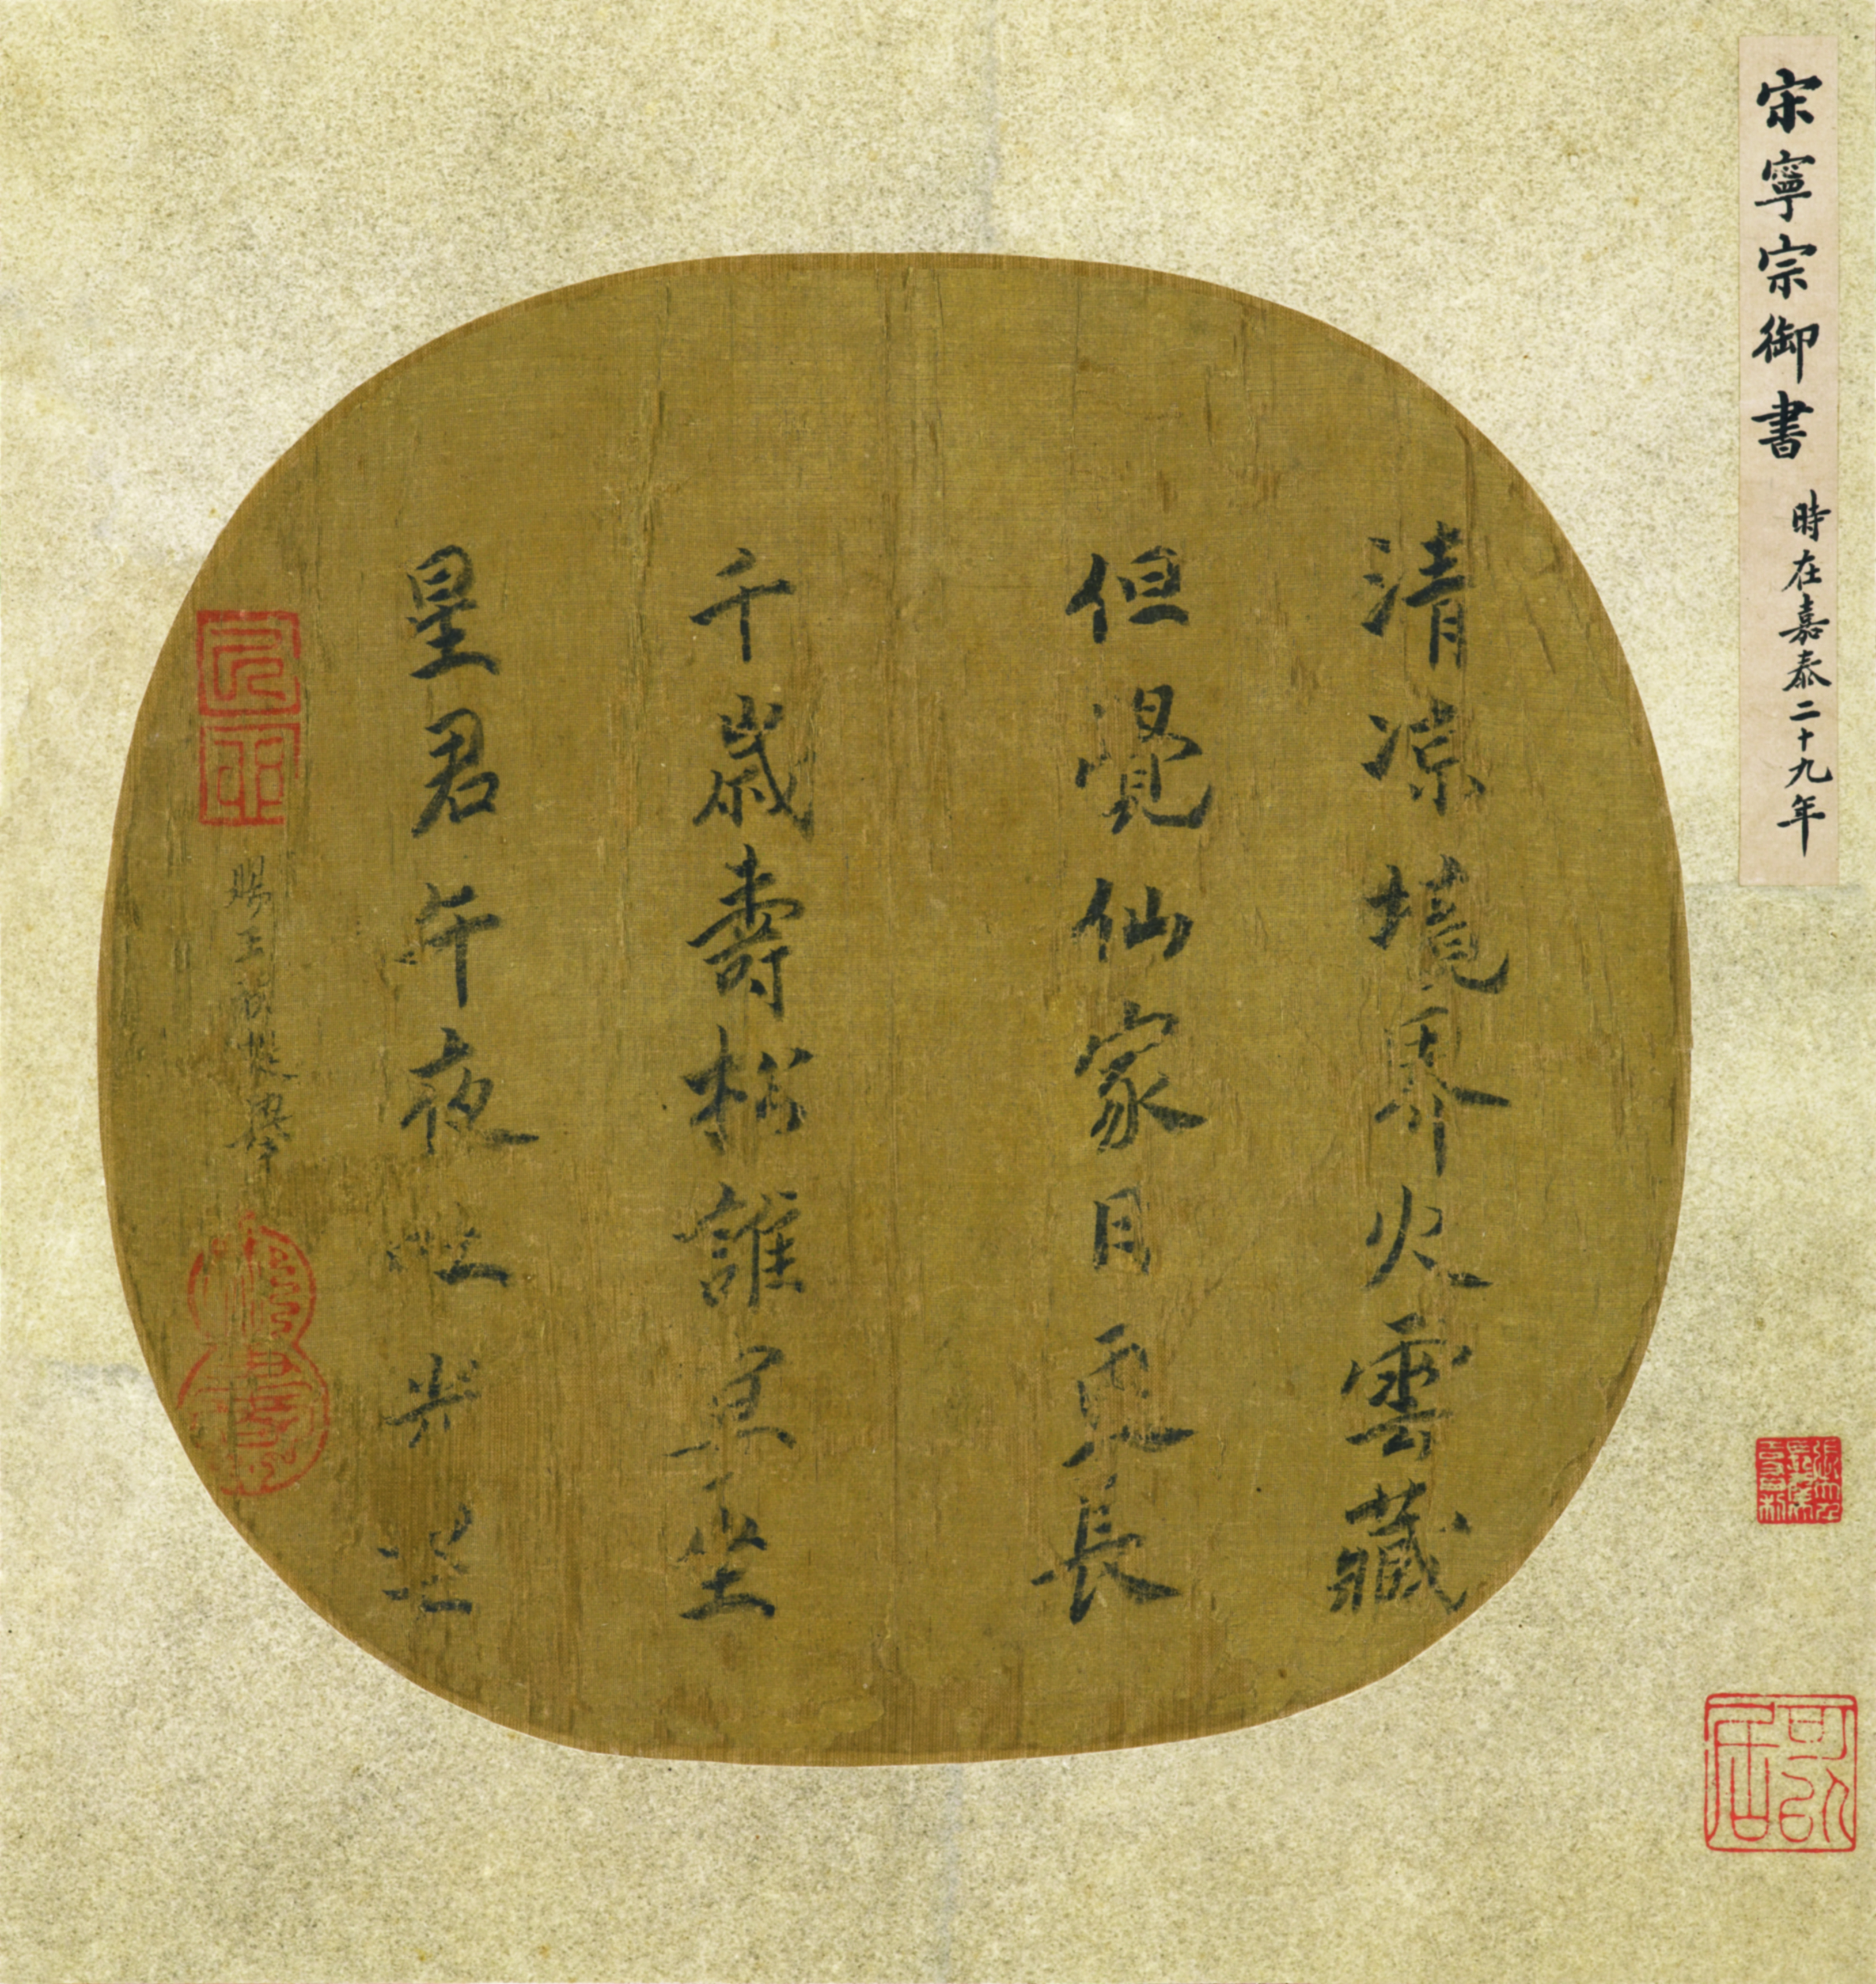 宋寧宗御書
時在嘉泰二十九年
清凉境界火雲藏
但覺仙家日更長
千歲壽松誰坐
星君午夜吐光芒
賜王提舉
御書